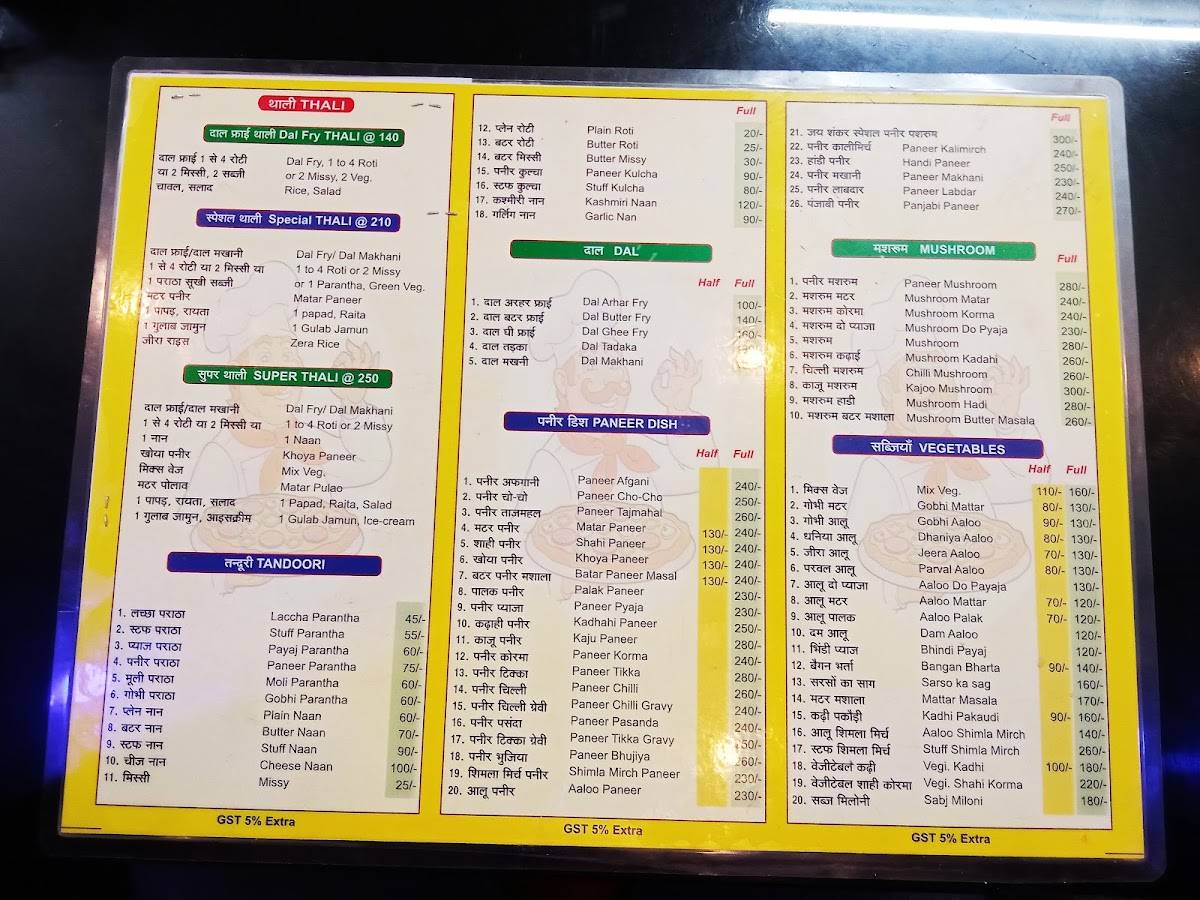 थाली THALI
दाल फ्राई थाली Dal Fry THALI @ 140
दाल फ्राई 1 से 4 रोटी Dal Fry, 1 to 4 Roti
या 2 मिस्सी, 2 सब्जी or 2 Missy, 2 Veg.
चावल, सलाद Rice, Salad
स्पेशल थाली Special THALI @ 210
दाल फ्राई/दाल मखानी Dal Fry/ Dal Makhani
1 से 4 रोटी या 2 मिस्सी या 1 to 4 Roti or 2 Missy
1 पराठा सूखी सब्जी or 1 Parantha, Green Veg.
मटर पनीर Matar Paneer
1 पापड़, रायता 1 papad, Raita
1 गुलाब जामुन 1 Gulab Jamun
जीरा राइस Zera Rice
सुपर थाली SUPER THALI @ 250
दाल फ्राई/दाल मखानी Dal Fry/ Dal Makhani
1 से 4 रोटी या 2 मिस्सी या 1 to 4 Roti or 2 Missy
1 नान 1 Naan
खोया पनीर Khoya Paneer
मिक्स वेज Mix Veg.
मटर पोलाव Matar Pulao
1 पापड़, रायता, सलाद 1 Papad, Raita, Salad
1 गुलाब जामुन, आइसक्रीम 1 Gulab Jamun, Ice-cream
तन्दूरी TANDOORI
1. लच्छा पराठा Laccha Parantha 45/-
2. स्टफ पराठा Stuff Parantha 55/-
3. प्याज पराठा Payaj Parantha 60/-
4. पनीर पराठा Paneer Parantha 75/-
5. मूली पराठा Moli Parantha 60/-
6. गोभी पराठा Gobhi Parantha 60/-
7. प्लेन नान Plain Naan 60/-
8. बटर नान Butter Naan 70/-
9. स्टफ नान Stuff Naan 90/-
10. चीज नान Cheese Naan 100/-
11. मिस्सी Missy 25/-
GST 5% Extra
Full
12. प्लेन रोटी Plain Roti 20/-
13. बटर रोटी Butter Roti 25/-
14. बटर मिस्सी Butter Missy 30/-
15. पनीर कुल्चा Paneer Kulcha 90/-
16. स्टफ कुल्चा Stuff Kulcha 80/-
17. कश्मीरी नान Kashmiri Naan 120/-
18. गर्लिग नान Garlic Nan 90/-
दाल DAL
Half Full
1. दाल अरहर फ्राई Dal Arhar Fry 100/-
2. दाल बटर फ्राई Dal Butter Fry 140/-
3. दाल घी फ्राई Dal Ghee Fry 160/-
4. दाल तड़का Dal Tadaka
5. दाल मखनी Dal Makhani
पनीर डिश PANEER DISH
Half Full
1. पनीर अफगानी Paneer Afgani 240/-
2. पनीर चो-चो Paneer Cho-Cho 250/-
3. पनीर ताजमहल Paneer Tajmahal 260/-
4. मटर पनीर Matar Paneer 130/- 240/-
5. शाही पनीर Shahi Paneer 130/- 240/-
6. खोया पनीर Khoya Paneer 130/- 240/-
7. बटर पनीर मशाला Batar Paneer Masal 130/- 240/-
8. पालक पनीर Palak Paneer 230/-
9. पनीर प्याजा Paneer Pyaja 230/-
10. कढ़ाही पनीर Kadhahi Paneer 250/-
11. काजू पनीर Kaju Paneer 280/-
12. पनीर कोरमा Paneer Korma 240/-
13. पनीर टिक्का Paneer Tikka 280/-
14. पनीर चिल्ली Paneer Chilli 260/-
15. पनीर चिल्ली ग्रेवी Paneer Chilli Gravy 240/-
16. पनीर पसंदा Paneer Pasanda 240/-
17. पनीर टिक्का ग्रेवी Paneer Tikka Gravy
18. पनीर भुजिया Paneer Bhujiya 260/-
19. शिमला मिर्च पनीर Shimla Mirch Paneer 230/-
20. आलू पनीर Aaloo Paneer 230/-
GST 5% Extra
Full
21. जय शंकर स्पेशल पनीर पशरुम 300/-
22. पनीर कालीमिर्च Paneer Kalimirch 240/-
23. हांडी पनीर Handi Paneer 250/-
24. पनीर मखानी Paneer Makhani 230/-
25. पनीर लाबदार Paneer Labdar 240/-
26. पंजाबी पनीर Panjabi Paneer 270/-
मशरूम MUSHROOM
Full
1. पनीर मशरुम Paneer Mushroom 280/-
2. मशरुम मटर Mushroom Matar 240/-
3. मशरुम कोरमा Mushroom Korma 240/-
4. मशरुम दो प्याजा Mushroom Do Pyaja 230/-
5. मशरुम Mushroom 280/-
6. मशरुम कढ़ाई Mushroom Kadahi 260/-
7. चिल्ली मशरुम Chilli Mushroom 260/-
8. काजू मशरुम Kajoo Mushroom 300/-
9. मशरुम हाडी Mushroom Hadi 280/-
10. मशरुम बटर मशाला Mushroom Butter Masala 260/-
सब्जियाँ VEGETABLES
Half Full
1. मिक्स वेज Mix Veg. 110/- 160/-
2. गोभी मटर Gobhi Mattar 80/- 130/-
3. गोभी आलू Gobhi Aaloo 90/- 130/-
4. धनिया आलू Dhaniya Aaloo 80/- 130/-
5. जीरा आलू Jeera Aaloo 70/- 130/-
6. परवल आलू Parval Aaloo 80/- 130/-
7. आलू दो प्याजा Aaloo Do Payaja 130/-
8. आलू मटर Aaloo Mattar 70/- 120/-
9. आलू पालक Aaloo Palak 70/- 120/-
10. दम आलू Dam Aaloo 120/-
11. भिंडी प्याज Bhindi Payaj 120/-
12. बैगन भर्ता Bangan Bharta 90/- 140/-
13. सरसों का साग Sarso ka sag 160/-
14. मटर मशाला Mattar Masala 170/-
15. कढ़ी पकौड़ी Kadhi Pakaudi 90/- 160/-
16. आलू शिमला मिर्च Aaloo Shimla Mirch 140/-
17. स्टफ शिमला मिर्च Stuff Shimla Mirch 260/-
18. वेजीटेबल कढ़ी Vegi. Kadhi 100/- 180/-
19. वेजीटेबल शाही कोरमा Vegi. Shahi Korma 220/-
20. सब्ज मिलोनी Sabj Miloni 180/-
GST 5% Extra